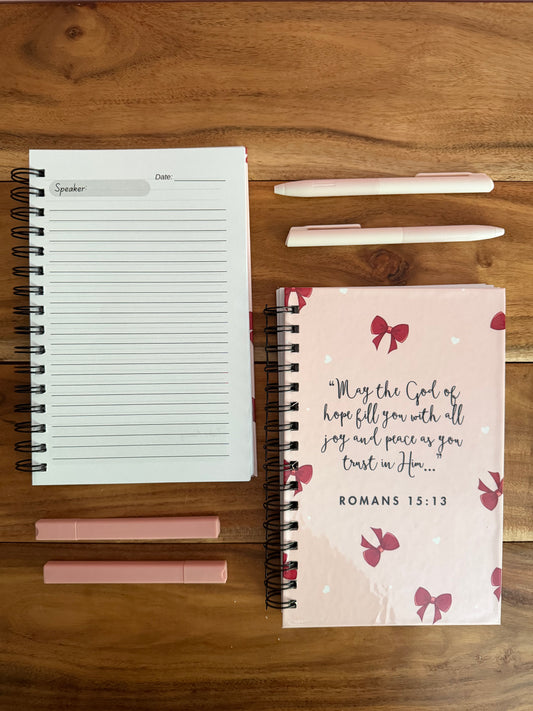 Speaker
Date:
“May the God of
hope fill you with all
joy and peace as you
trust in Him...”
ROMANS 15:13